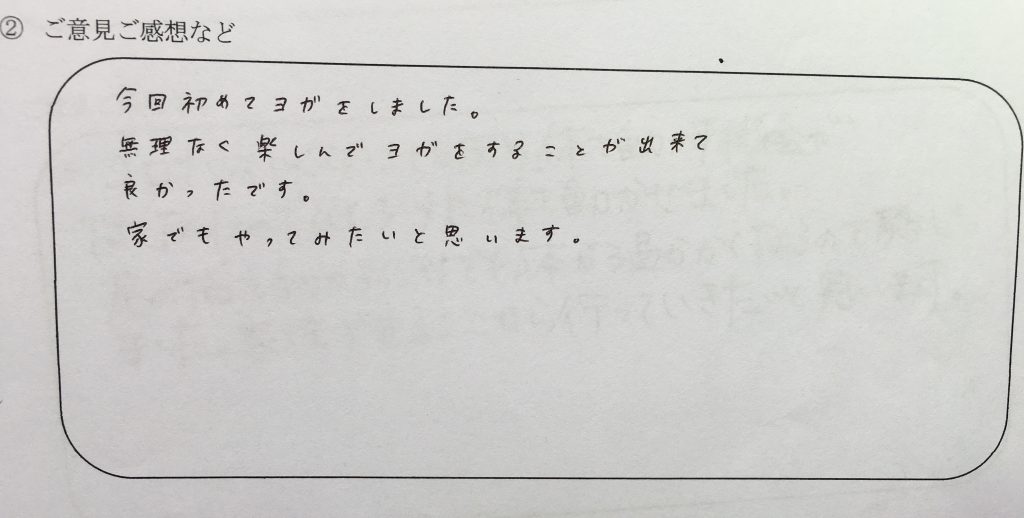 ② ご意見ご感想など
今回初めてヨガをしました。
無理なく楽しんでヨガをすることが出来て
良かったです。
家でもやってみたいと思います。